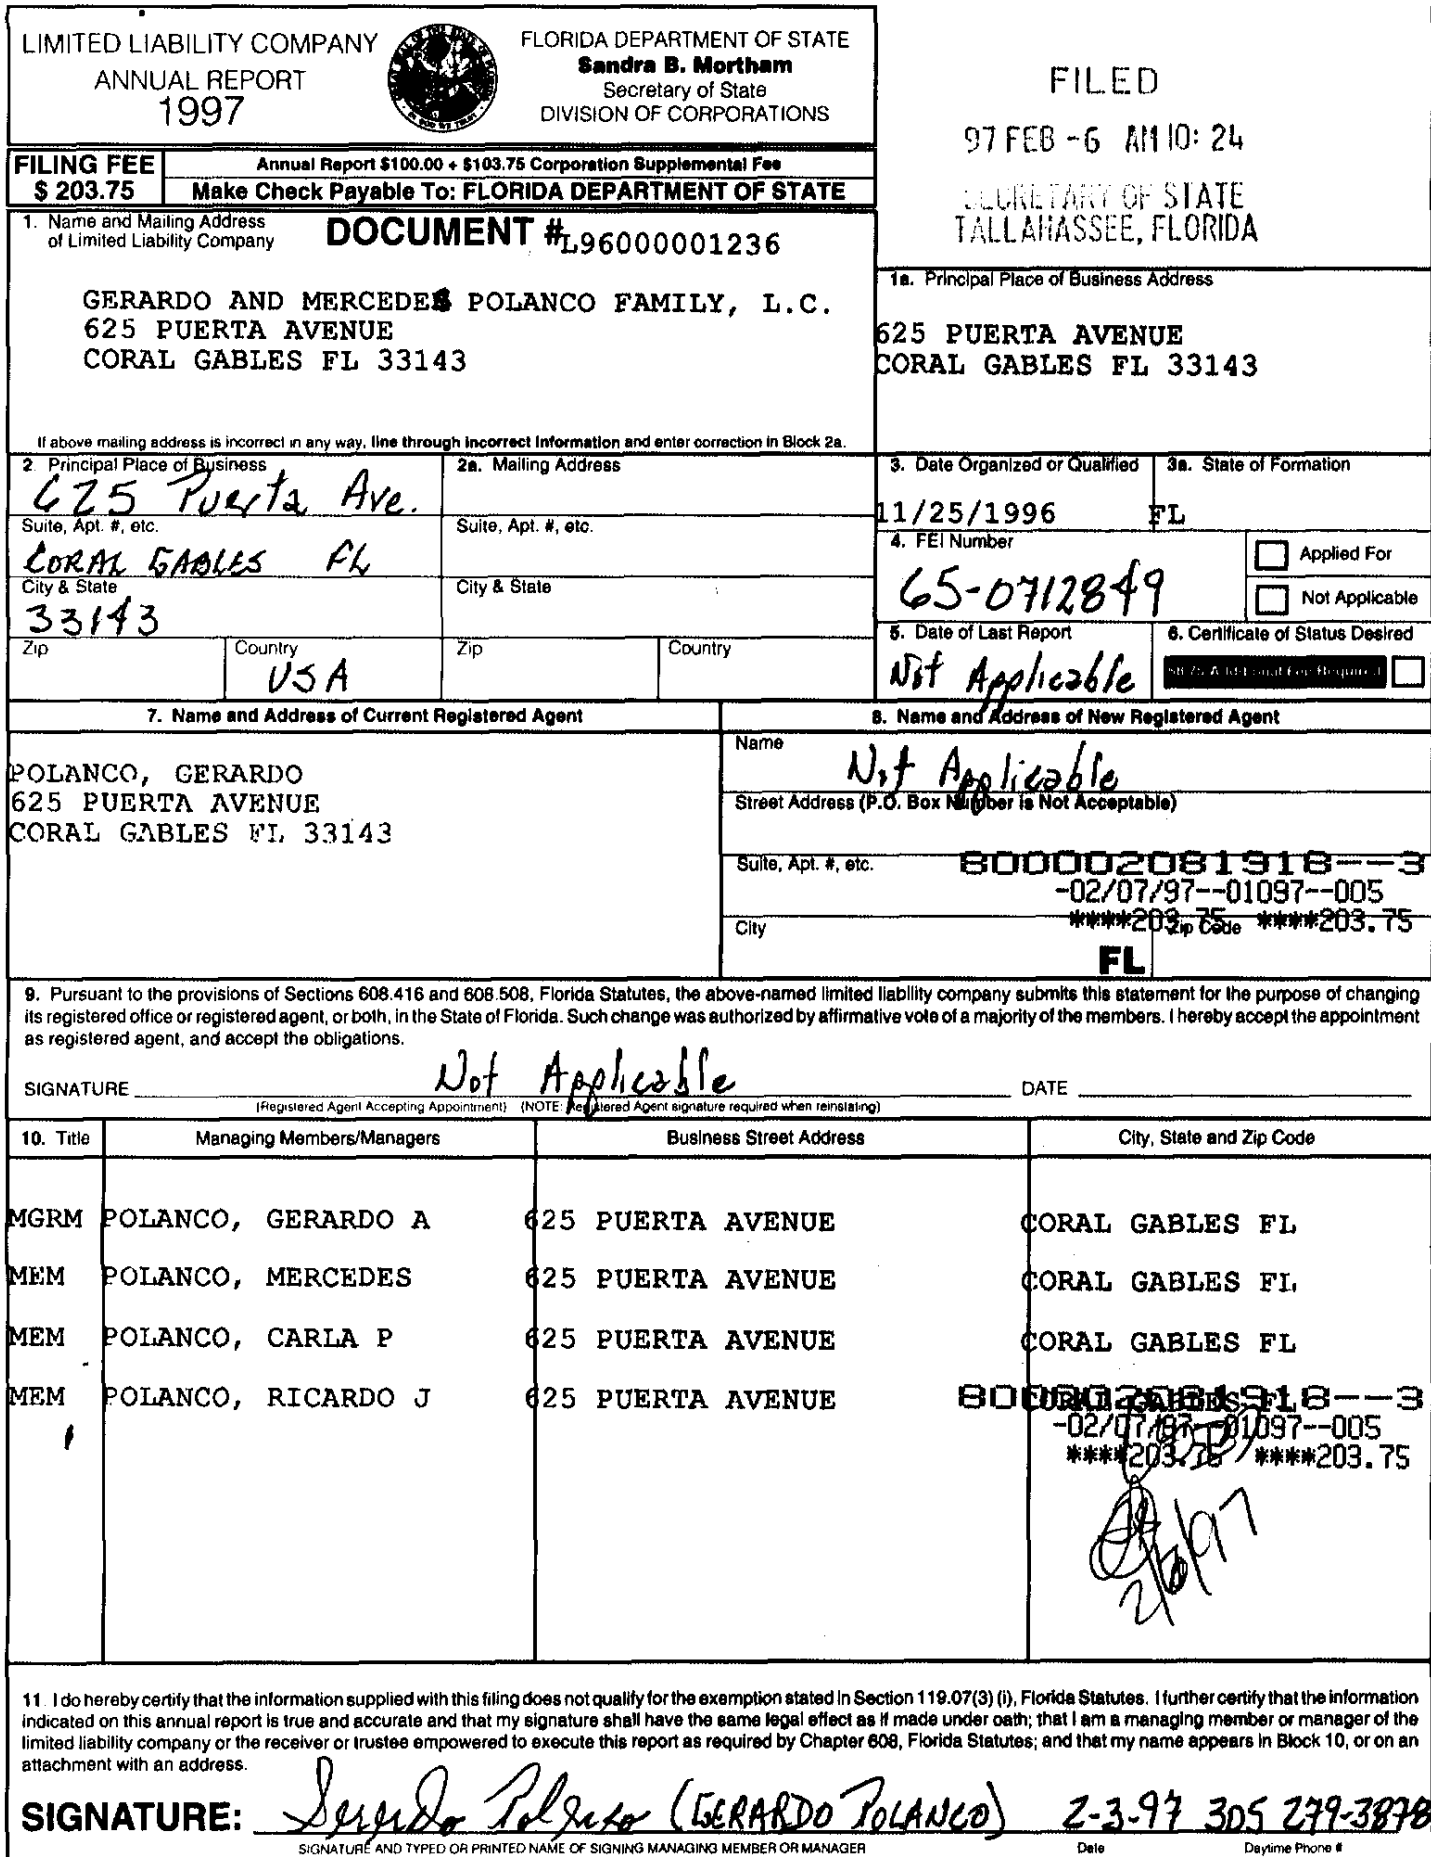 LIMITED LIABILITY COMPANY
ANNUAL REPORT
1997
FLORIDA DEPARTMENT OF STATE
Sandra B. Mortham
Secretary of State
DIVISION OF CORPORATIONS
FILED
97 FEB -6 AM 10: 24
SECRETARY OF STATE
TALLAHASSEE, FLORIDA
FILING FEE
$ 203.75
Annual Report $100.00 + $103.75 Corporation Supplemental Fee
Make Check Payable To: FLORIDA DEPARTMENT OF STATE
1. Name and Mailing Address
of Limited Liability Company
DOCUMENT #L96000001236
GERARDO AND MERCEDES POLANCO FAMILY, L.C.
625 PUERTA AVENUE
CORAL GABLES FL 33143
1a. Principal Place of Business Address
625 PUERTA AVENUE
CORAL GABLES FL 33143
If above mailing address is incorrect in any way, line through incorrect information and enter correction in Block 2a.
2. Principal Place of Business
625 Puerta Ave.
2a. Mailing Address
Suite, Apt. #, etc.
CORAL GABLES FL
Suite, Apt. #, etc.
City & State
33143
City & State
Zip
Country
USA
Zip
Country
3. Date Organized or Qualified
11/25/1996
3a. State of Formation
FL
4. FEI Number
65-0712849
Applied For
Not Applicable
5. Date of Last Report
Not Applicable
6. Certificate of Status Desired
$8.75 Additional Fee Required
7. Name and Address of Current Registered Agent
POLANCO, GERARDO
625 PUERTA AVENUE
CORAL GABLES FL 33143
8. Name and Address of New Registered Agent
Name
Not Applicable
Street Address (P.O. Box Number is Not Acceptable)
Suite, Apt. #, etc.
800002081918--3
-02/07/97--01097--005
****203.75 ****203.75
City
Zip Code
FL
9. Pursuant to the provisions of Sections 608.416 and 608.508, Florida Statutes, the above-named limited liability company submits this statement for the purpose of changing
its registered office or registered agent, or both, in the State of Florida. Such change was authorized by affirmative vote of a majority of the members. I hereby accept the appointment
as registered agent, and accept the obligations.
SIGNATURE Not Applicable DATE
(Registered Agent Accepting Appointment) (NOTE: Registered Agent signature required when reinstating)
10. Title Managing Members/Managers Business Street Address City, State and Zip Code
MGRM POLANCO, GERARDO A 625 PUERTA AVENUE CORAL GABLES FL
MEM POLANCO, MERCEDES 625 PUERTA AVENUE CORAL GABLES FL
MEM POLANCO, CARLA P 625 PUERTA AVENUE CORAL GABLES FL
MEM POLANCO, RICARDO J 625 PUERTA AVENUE CORAL GABLES FL
800002081918--3
-02/07/97--01097--005
****203.75 ****203.75
2/6/97
11. I do hereby certify that the information supplied with this filing does not qualify for the exemption stated in Section 119.07(3) (i), Florida Statutes. I further certify that the information
indicated on this annual report is true and accurate and that my signature shall have the same legal effect as if made under oath; that I am a managing member or manager of the
limited liability company or the receiver or trustee empowered to execute this report as required by Chapter 608, Florida Statutes; and that my name appears in Block 10, or on an
attachment with an address.
SIGNATURE: Gerardo Polanco (GERARDO POLANCO) 2-3-97 305 279-3878
SIGNATURE AND TYPED OR PRINTED NAME OF SIGNING MANAGING MEMBER OR MANAGER Date Daytime Phone #